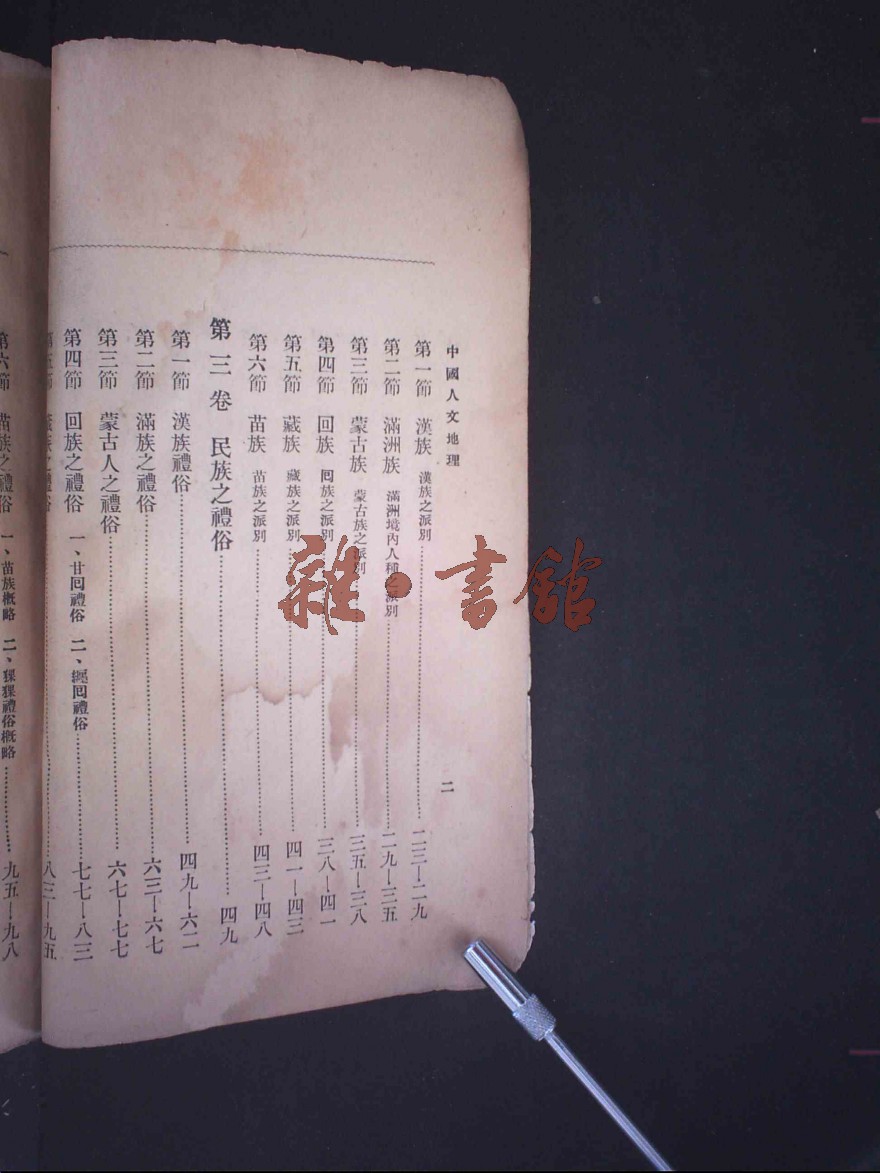 中國人文地理
二
第一節 漢族 漢族之派別 二三—二九
第二節 滿洲族 滿洲境內人種之派別 二九—三五
第三節 蒙古族 蒙古族之派別 三五—三八
第四節 回族 回族之派別 三八—四一
第五節 藏族 藏族之派別 四一—四三
第六節 苗族 苗族之派別 四三—四八
第三卷 民族之禮俗 四九
第一節 漢族禮俗 四九—六二
第二節 滿族之禮俗 六三—六七
第三節 蒙古人之禮俗 六七—七七
第四節 回族之禮俗 一、甘回禮俗 二、纏回禮俗 七七—八三
第五節 藏族之禮俗 八三—九五
第六節 苗族之禮俗 一、苗族概略 二、猓猓禮俗概略 九五—九八
雜·書館